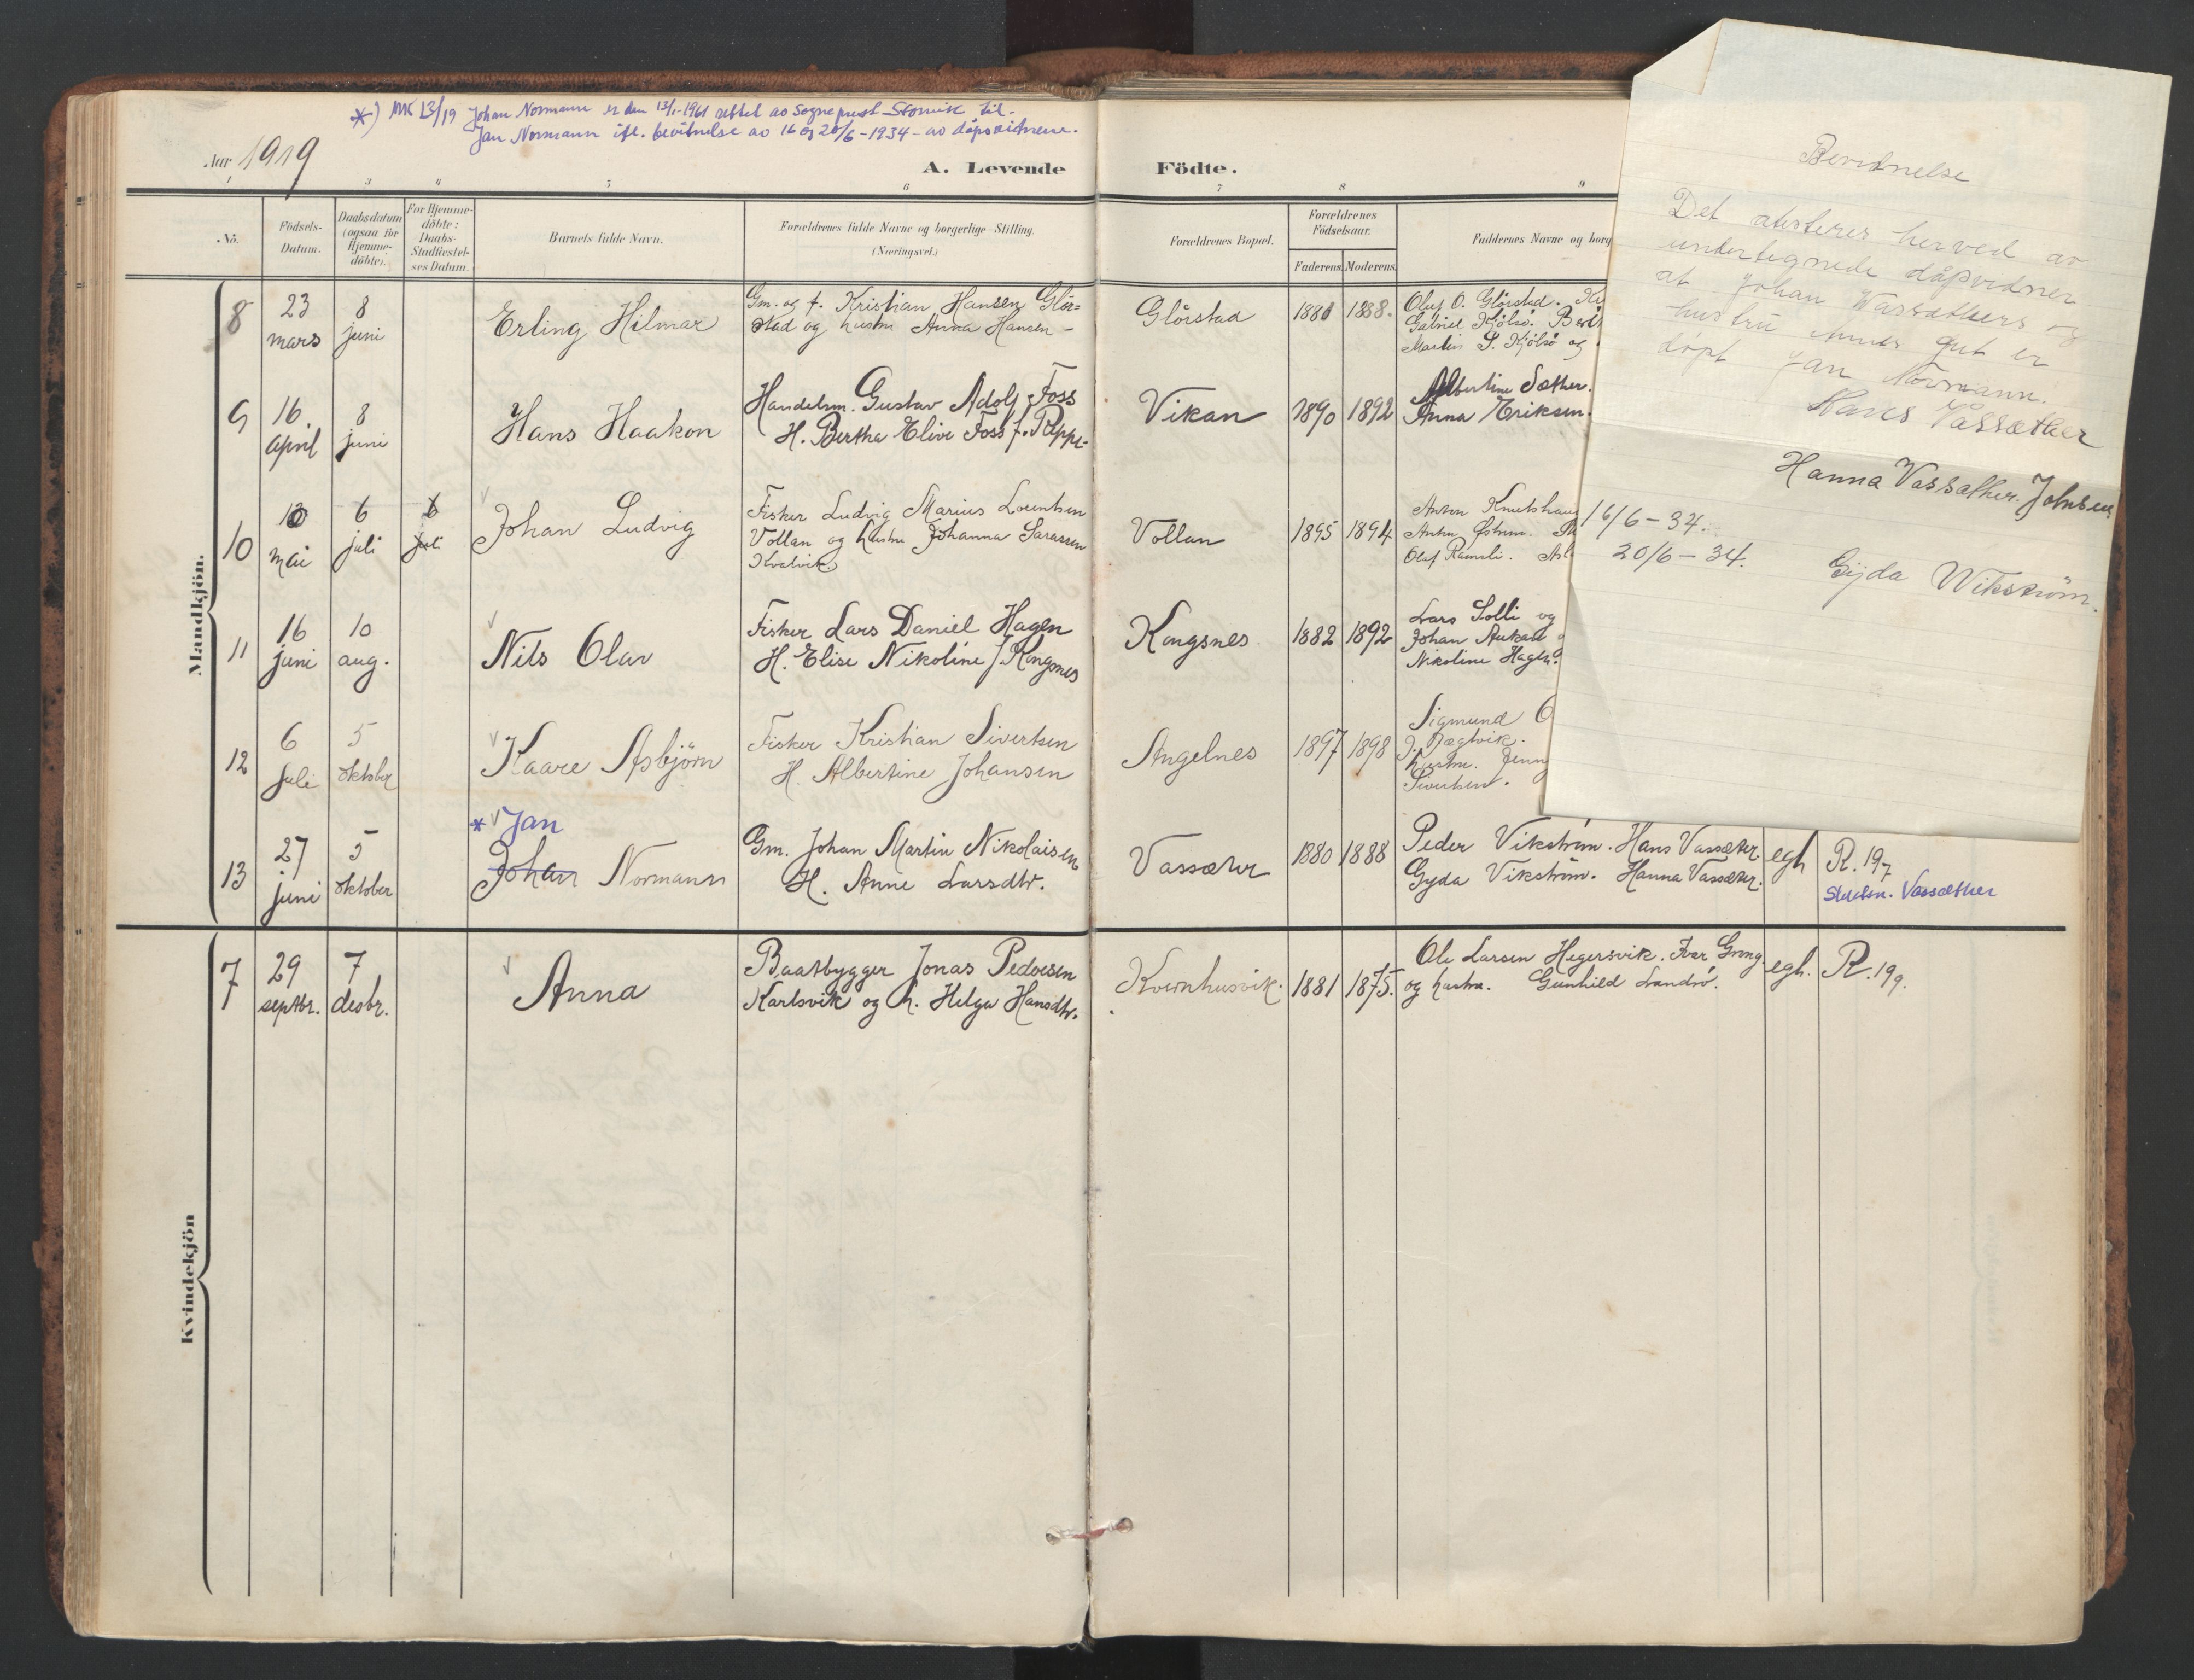 *) MK 13/19 Johan Normann er den 13/1-1961 rettet av sogneprest Storvik til
Jan Normann ifl. bevitnelse av 16 og 20/6-1934 - av dåpsvitnene.
Aar 1919
A. Levende Födte.
1 2 3 4 5 6 7 8 9
No.
Födsels-
Datum.
Daabsdatum
(ogsaa for
Hjemme-
döbte).
For Hjemme-
döbte:
Daabs-
Stadfæstel-
ses Datum.
Barnets fulde Navn.
Forældrenes fulde Navne og borgerlige Stilling.
(Næringsvei.)
Forældrenes Bopæl.
Forældrenes
Födselsaar.
Faderens. Moderens.
Faddernes Navne og borg
Mandkjön.
8
23
mars
8
juni
Erling Hilmar
Gm. og f. Kristian Hansen Glör=
stad og hustru Anna Hansen -
Glörstad
1881
1888.
Oluf O. Glörstad.
Gabriel Kjölsö.
Martin S. Kjölsö og
9
16.
april
8
juni
Hans Haakon
Handelsm. Gustav Adolf Foss
H. Bertha Elive Foss f. Reppe-
Vikan
1890
1892
Albertine Sæther.
Anna Eriksen.
10
mai
6
juli
6
juli
Johan Ludvig
Fisker Ludvig Marius Lorentsen
Vollan og hustru Johanna Sarassen
Kvalvik.
Vollan
1895
1894
Anton Knutshaug
Anton Østrem.
Olaf Ramsli.
11
16
juni
10
aug.
Nils Olav
Fisker Lars Daniel Hagen
H. Elise Nikoline f. Kongsnes
Kongsnes
1882
1892
Lars Solli og
Johan Aukan
Nikoline Hagen.
12
6
juli
5
oktober
Kaare Asbjörn
Fisker Kristian Sivertsen
H. Albertine Johansen
Angelnes
1897
1898
Sigmund
J. Jægtvik.
hustru. Jenny
Sivertsen.
13
27
juni
5
oktober
* Jan
Johan Normann
Gm. Johan Martin Nikolaisen
H. Anne Larsdtr.
Vassæter
1880
1888
Peder Vikström. Hans Vassæter.
Gyda Vikström. Hanna Vassæter.
egh
R. 197
Slektsn. Vassæther
Kvindekjön
7
29
septbr.
7
desbr.
Anna
Baatbygger Jonas Pedersen
Karlsvik og h. Helga Hansdtr.
Kvernhusvik.
1881
1875.
Ole Larsen Hegersvik. Iver Gröng
og hustru. Gunhild Landrö.
egh.
R. 199.
Bevidnelse
Det atesteres herved av
undertegnede dåpvidner
at Johan Wassæthers og
hustru Annes gut er
döpt Jan Normann.
Hans Vassæther
Hanna Vassæther. Johnsen
16/6-34.
20/6-34.
Gyda Wikström.